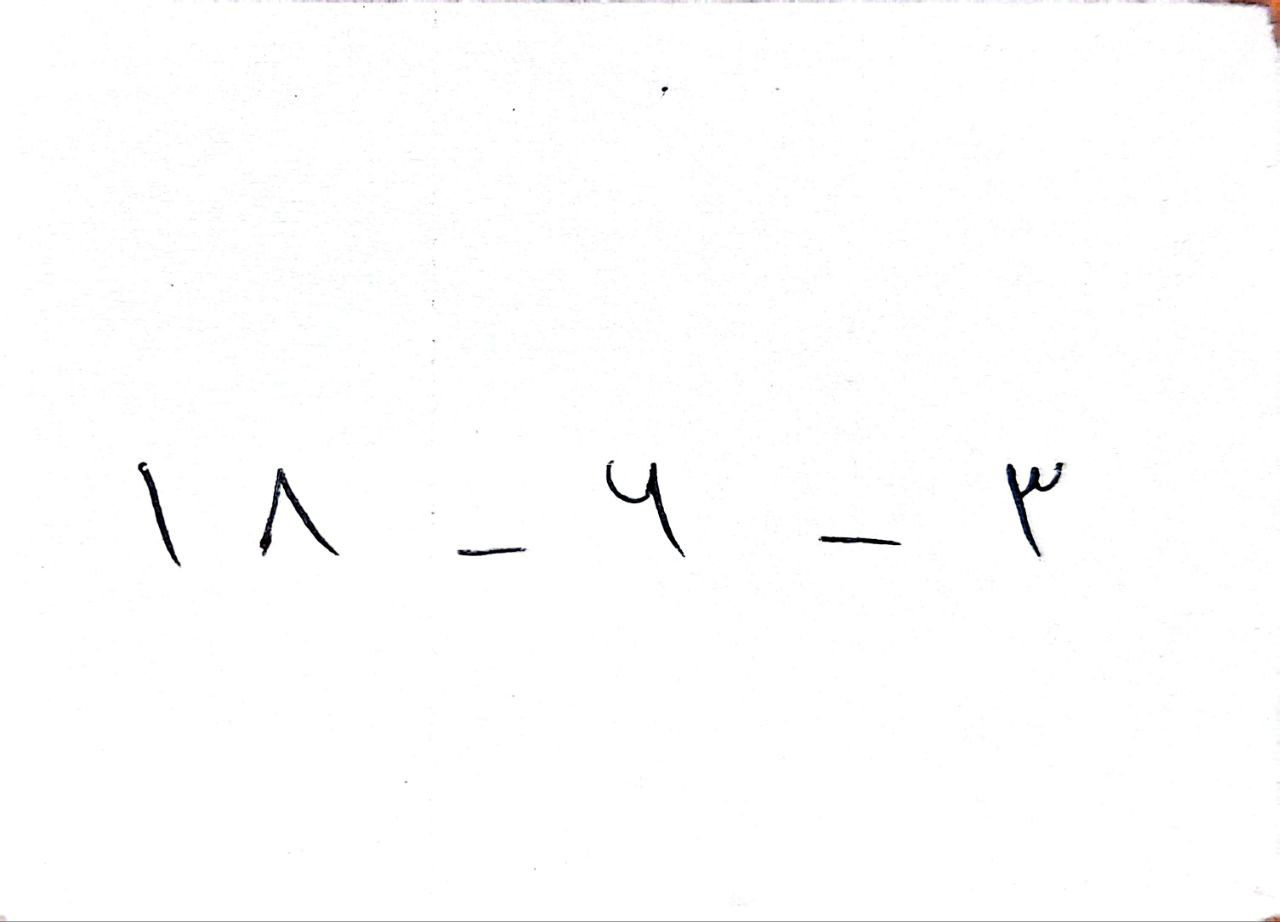 ۱۸ - ۶ - ۳